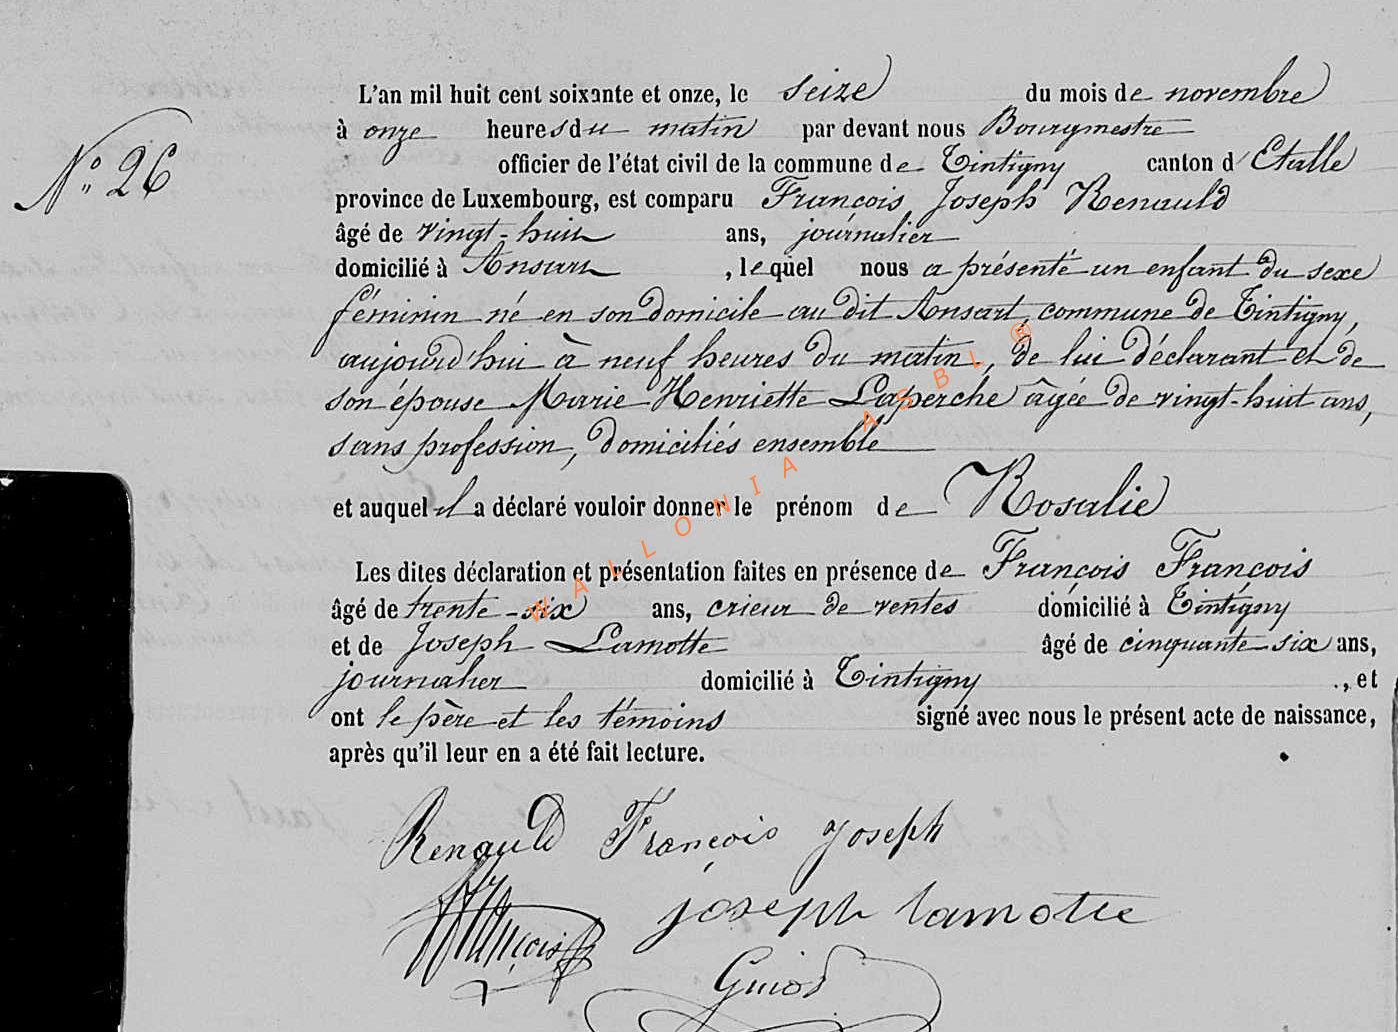 L'an mil huit cent soixante et onze, le seize du mois de novembre
N° 26
à onze heures du matin par devant nous Bourgmestre
officier de l'état civil de la commune de Tintigny canton d'Etalle
province de Luxembourg, est comparu François Joseph Renauld
âgé de vingt-huit ans, journalier
domicilié à Ansart, lequel nous a présenté un enfant du sexe
féminin né en son domicile au dit Ansart, commune de Tintigny,
aujourd'hui à neuf heures du matin, de lui déclarant et de
son épouse Marie Henriette Laperche âgée de vingt-huit ans,
sans profession, domiciliés ensemble
et auquel il a déclaré vouloir donner le prénom de Rosalie
Les dites déclaration et présentation faites en présence de François François
âgé de trente-six ans, crieur de ventes domicilié à Tintigny
et de Joseph Lamotte âgé de cinquante-six ans,
journalier domicilié à Tintigny ., et
ont le père et les témoins signé avec nous le présent acte de naissance,
après qu'il leur en a été fait lecture.
Renauld François Joseph
François
joseph lamotte
Guiod
WALLONIA ASBL ®